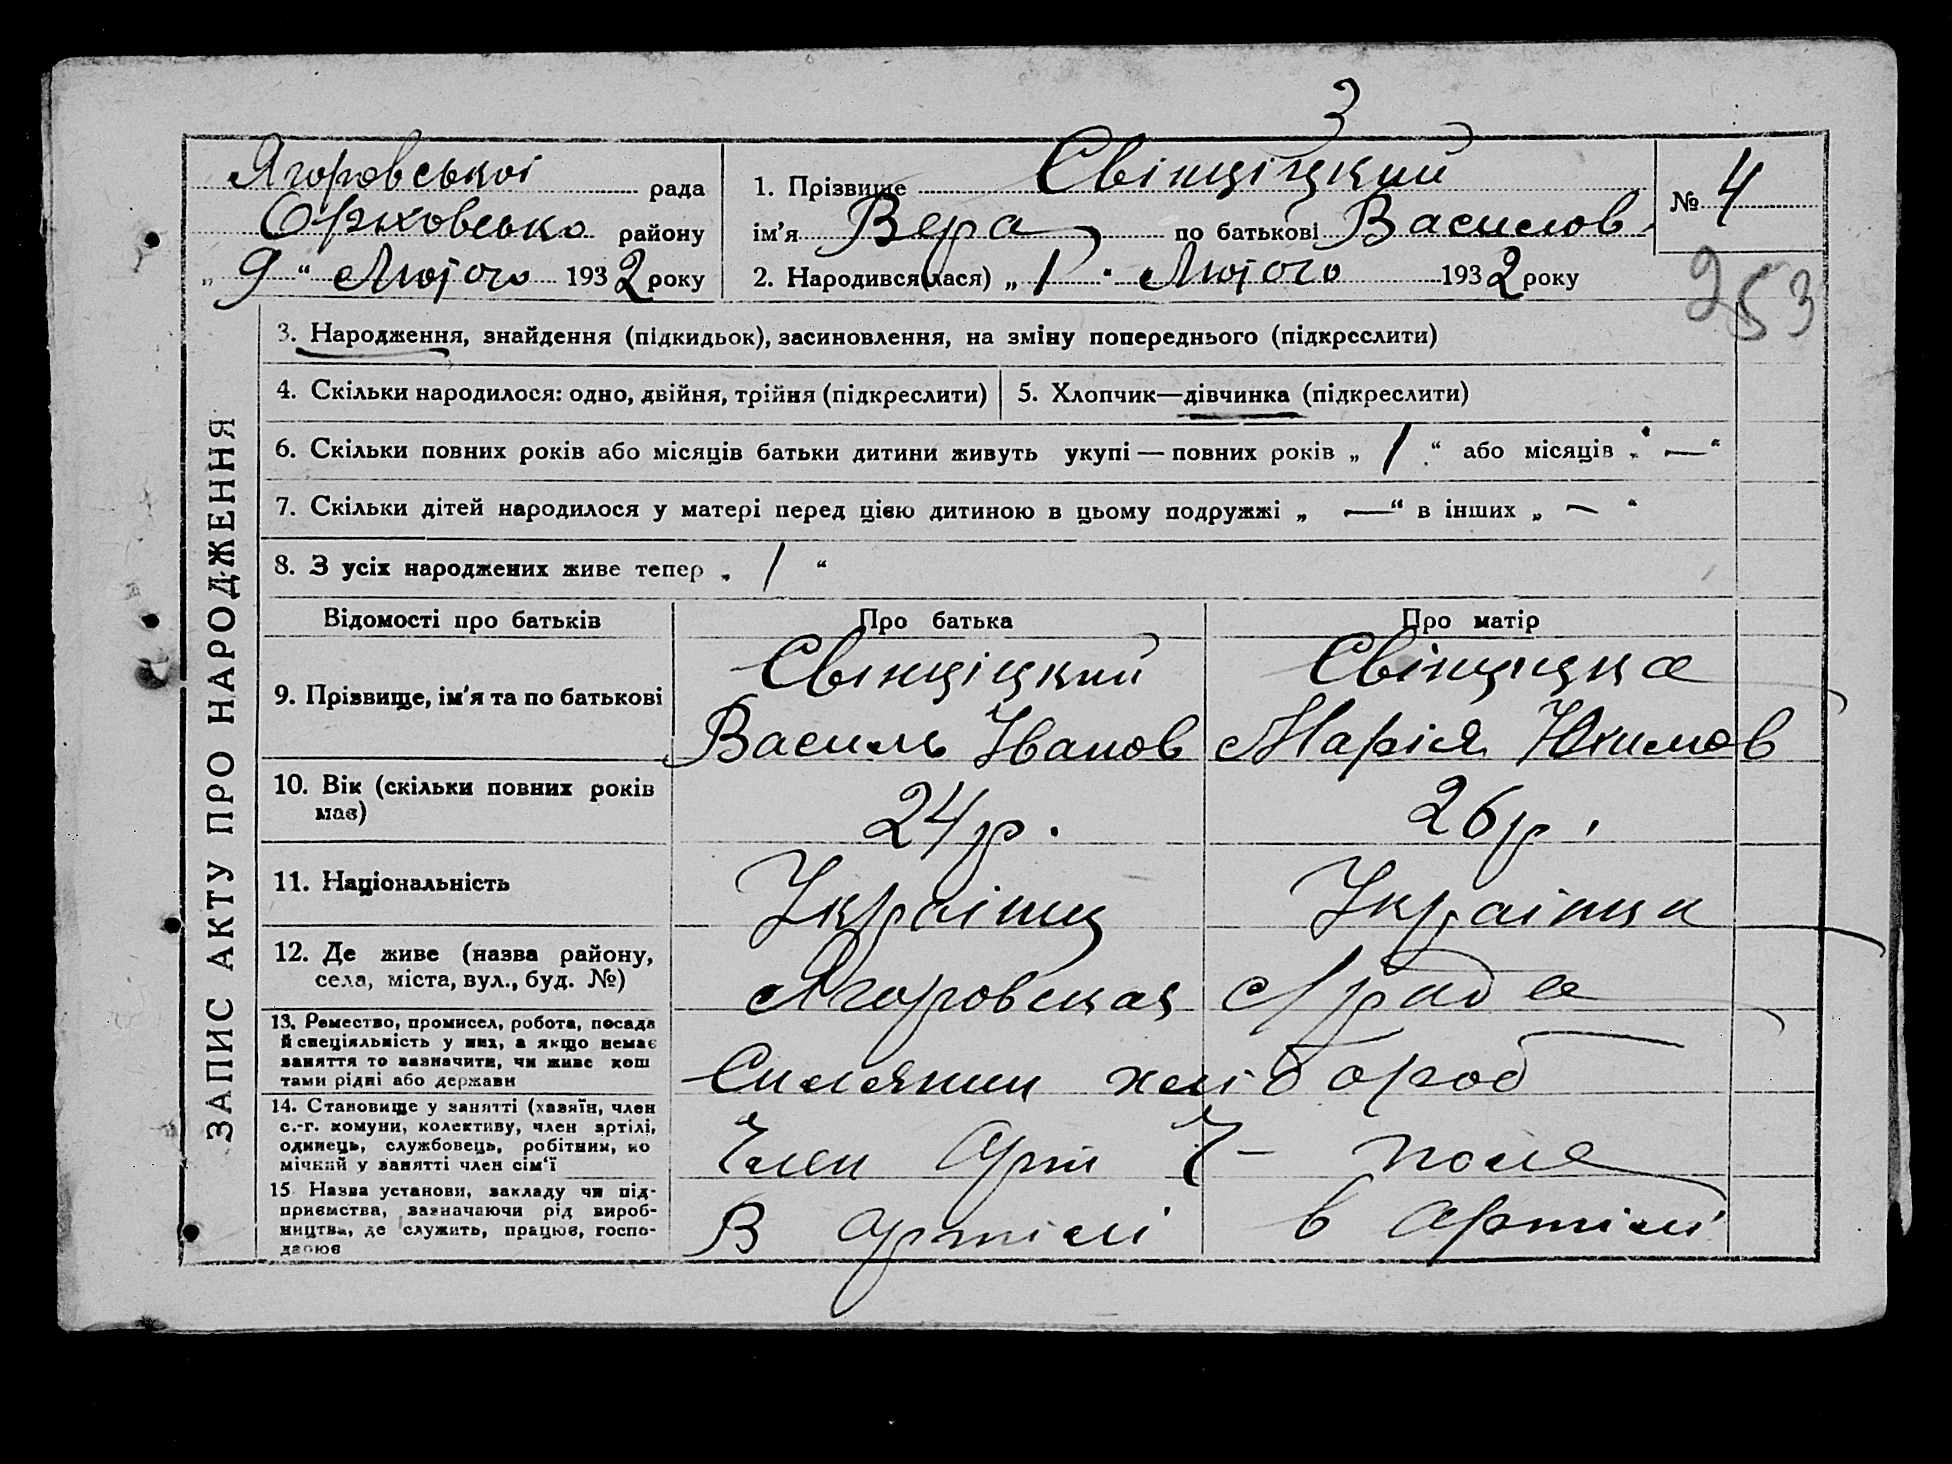 3
Ягоровської рада
Оріховсько району
„ 9 “ Лютого 1932 року
1. Прізвище Свінціцкий
ім'я Вера по батькові Василов.
2. Народився(лася) „ 1 “ Лютого 1932 року
№ 4
253
ЗАПИС АКТУ ПРО НАРОДЖЕННЯ
3. Народження, знайдення (підкидьок), засиновлення, на зміну попереднього (підкреслити)
4. Скільки народилося: одно, двійня, трійня (підкреслити)
5. Хлопчик—дівчинка (підкреслити)
6. Скільки повних років або місяців батьки дитини живуть укупі — повних років „ 1 “ або місяців „ — “
7. Скільки дітей народилося у матері перед цією дитиною в цьому подружжі „ — “ в інших „ — “
8. З усіх народжених живе тепер „ 1 “
Відомості про батьків
Про батька
Про матір
9. Прізвище, ім'я та по батькові
Свінціцкий
Василь Іванов
Свінціцка
Марія Юхимов
10. Вік (скільки повних років
має)
24 р.
26 р.
11. Національність
Українц
Українка
12. Де живе (назва району,
села, міста, вул., буд. №)
Ягоровская с/рада
13. Ремество, промисел, робота, посада
й спеціяльність у них, а якщо немає
заняття то зазначити, чи живе кош
тами рідні або держави
хлібороб
14. Становище у занятті (хазяїн, член
с.-г. комуни, колективу, член артілі,
одинець, службовець, робітник, по
мічний у занятті член сім'ї
Член Арт
15. Назва установи, закладу чи під-
приємства, зазначаючи рід вироб-
ництва, де служить, працює, госпо-
дарює
В артілі
в артілі